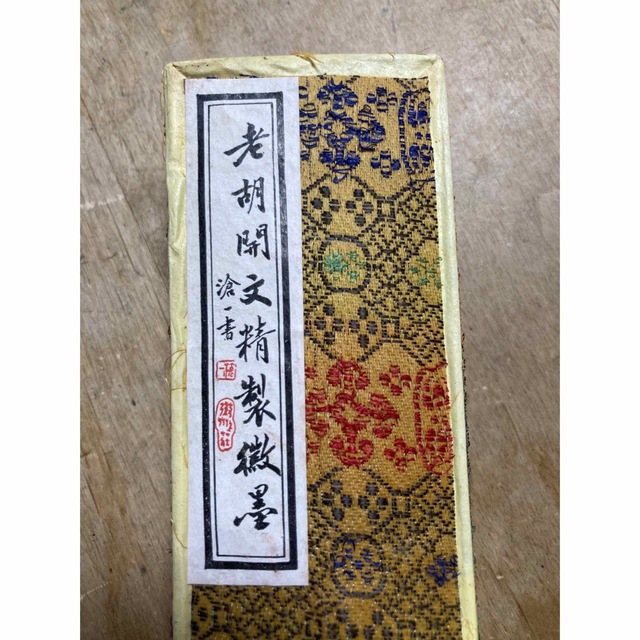 老胡開文精製徽墨
滄一書